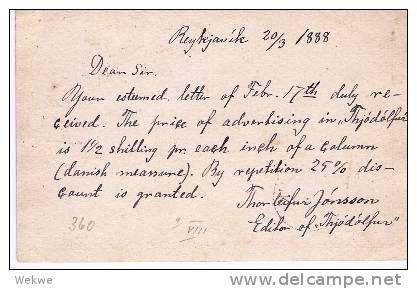 Reykjavík 20/3 1888
Dear Sir.
Your estumed letter of Febr. 17th duly re-
ceived. The price of advertising in „Thjódólfur"
is 1½ shilling pr. each inch of a column
(danish meassure). By repetition 25% dis-
count is granted.
Thorleifur Jónsson
Editor of „Thjódólfur"
360
VIII
Wekwe
delcampe.net